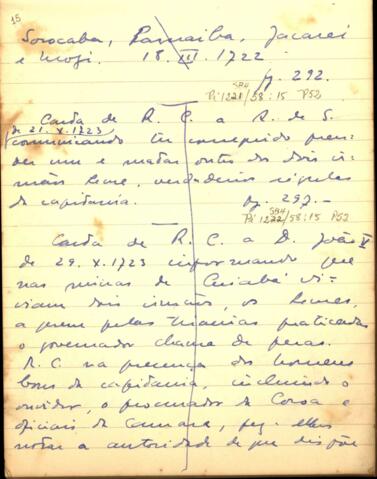 15
Sorocaba, Parnaiba, Jacarei
e Mogi. 18.III.1722
pg. 292.
SP4
Pi 1221/58:15 P52
Carta de R. C. a R. de S.
de 21.X.1723
comunicando ter conseguido pren-
der um e matar outro dos dois ir-
mãos Leme, verdadeiros régulos
da capitania. pg. 297-
SP4
Pi 1222/58:15 P52
Carta de R. C. a D. João V
de 29.X.1723 informando que
nas minas de Cuiabá vi-
viam dois irmãos, os Lemes,
a quem pelas tiranias praticadas
o governador chama de feras.
R. C. na presença dos homens
bons da capitania, incluindo o
ouvidor, o procurador da Coroa e
oficiais da Camara, fez
notar a autoridade de que dispõe